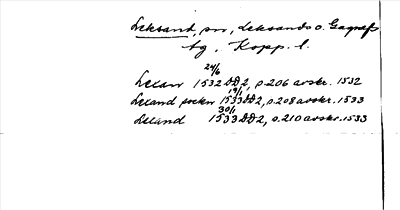 Leksand, sn, Leksands o. Gagnefs
tg, Kopp. l.
24/6
Lelan 1532 DD2, s.206 avskr. 1532
19/1
Leland sockn 1533 DD2, s.208 avskr. 1533
30/1
Leland 1533 DD2, s.210 avskr. 1533